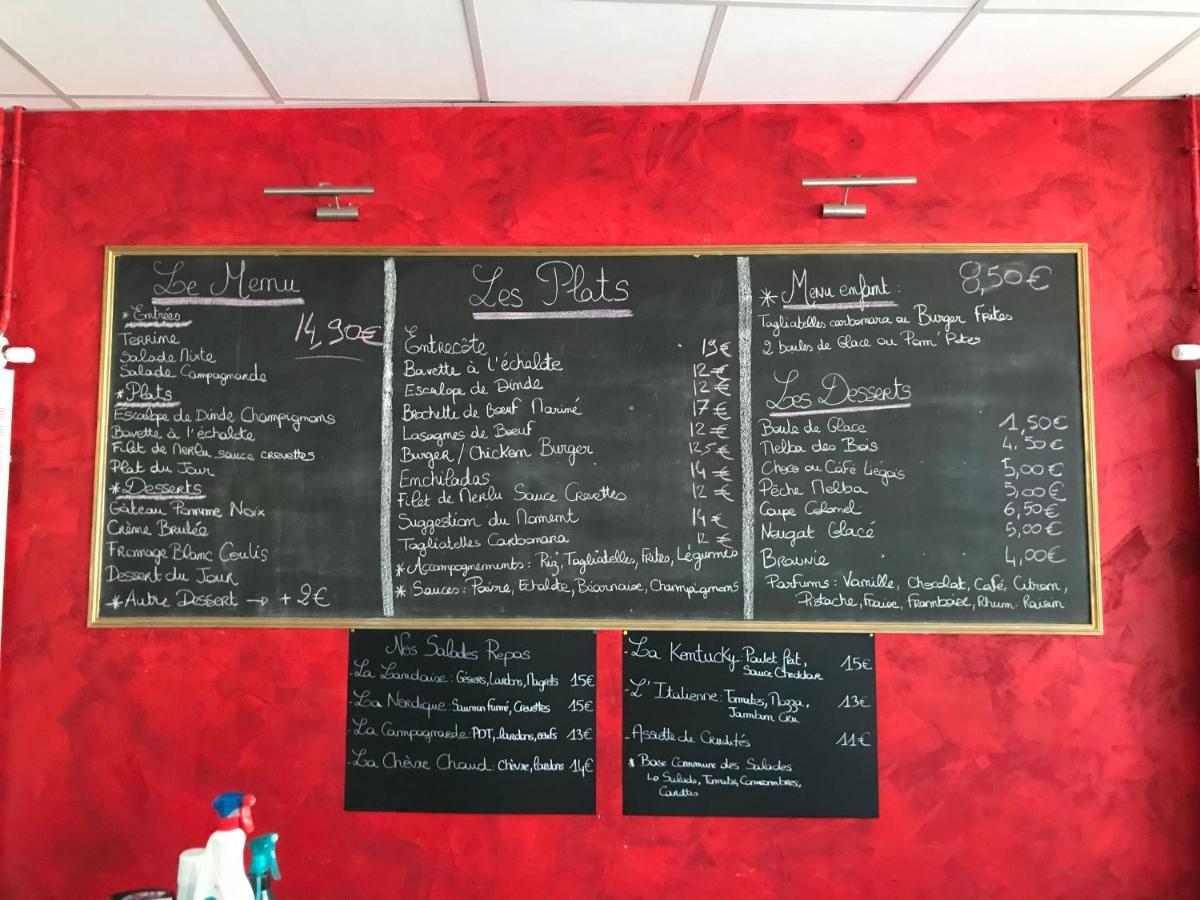 Le Menu
14,90€
* Entrées
Terrine
Salade Mixte
Salade Campagnarde
* Plats
Escalope de Dinde Champignons
Bavette à l'échalote
Filet de Merlu sauce crevettes
Plat du Jour
* Desserts
Gâteau Pomme Noix
Crème Brulée
Fromage Blanc Coulis
Dessert du Jour
* Autre Dessert → + 2€
Les Plats
Entrecôte 19€
Bavette à l'échalote 12€
Escalope de Dinde 12€
Brochette de Bœuf Mariné 17€
Lasagnes de Bœuf 12€
Burger / Chicken Burger 12,5€
Enchiladas 14€
Filet de Merlu Sauce Crevettes 12€
Suggestion du Moment 14€
Tagliatelles Carbonara 12€
* Accompagnements : Riz, Tagliatelles, Frites, Légumes
* Sauces : Poivre, Echalote, Béarnaise, Champignons
* Menu enfant : 8,50€
Tagliatelles carbonara ou Burger Frites
2 boules de Glace ou Pom'Potes
Les Desserts
Boule de Glace 1,50€
Melba des Bois 4.50€
Choco ou Café Liégois 5,00€
Pêche Melba 5,00€
Coupe Colonel 6,50€
Nougat Glacé 5,00€
Brownie 4,00€
Parfums : Vanille, Chocolat, Café, Citron,
Pistache, Fraise, Framboise, Rhum-Raisin
Nos Salades Repas
- La Landaise : Gésiers, Lardons, Magrets 15€
- La Nordique : Saumon Fumé, Crevettes 15€
- La Campagnarde : PDT, lardons, oeufs 13€
- La Chèvre Chaud : Chèvre, lardons 14€
- La Kentucky : Poulet frit, 15€
Sauce Cheddar
- L'Italienne : Tomates, Mozza, 13€
Jambon Cru
- Assiette de Crudités 11€
* Base Commune des Salades
Salade, Tomates, Concombres,
Carottes